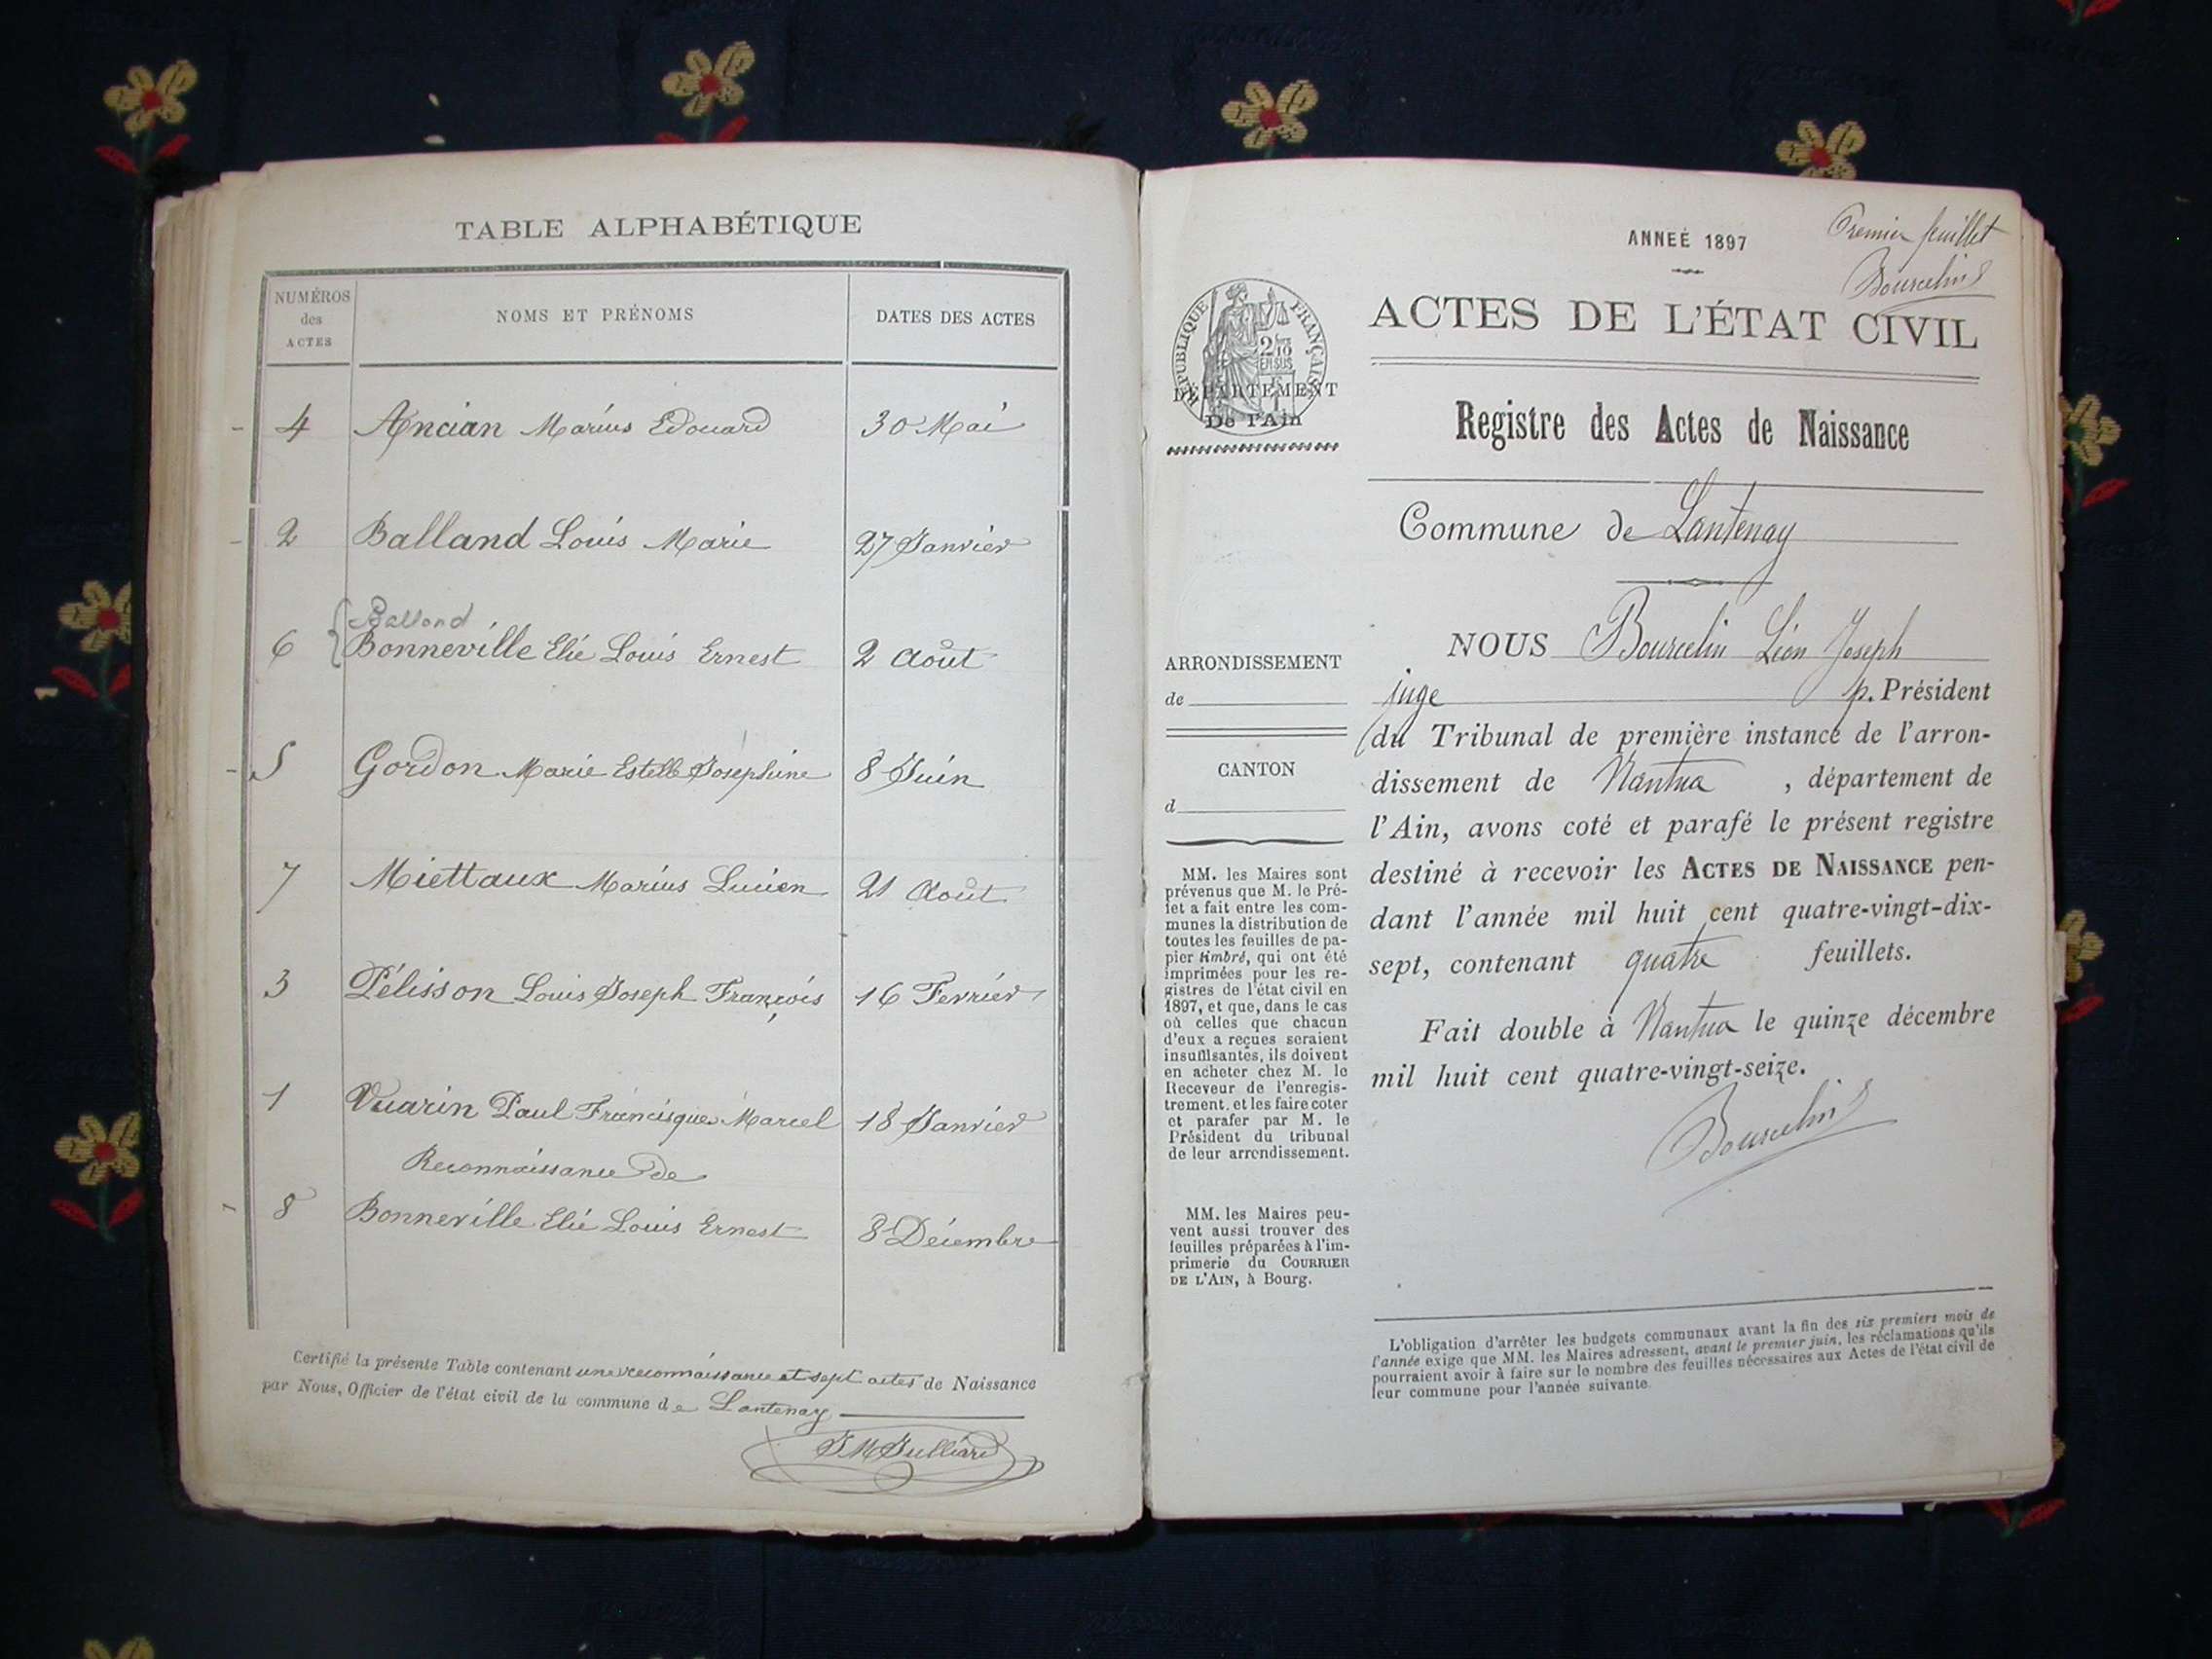 TABLE ALPHABÉTIQUE
NUMÉROS
des
ACTES
NOMS ET PRÉNOMS
DATES DES ACTES
4 Ancian Marius Edouard 30 Mai
2 Balland Louis Marie 27 Janvier
Balland
6 Bonneville Elie Louis Ernest 2 Août
5 Gordon Marie Estelle Joséphine 8 Juin
7 Miettaux Marius Lucien 21 Août
3 Pélisson Louis Joseph François 16 Fevrier
1 Vuarin Paul Francisque Marcel 18 Janvier
Reconnaissance de
8 Bonneville Elie Louis Ernest 8 Décembre
Certifié la présente Table contenant une reconnaissance et sept actes de Naissance
par Nous, Officier de l'état civil de la commune de Lantenay
J M Julliard
ANNEÉ 1897
Premier feuillet
Bourcelin
RÉPUBLIQUE FRANÇAISE
2/10
EN SUS
DÉPARTEMENT
De l'Ain
ACTES DE L'ÉTAT CIVIL
Registre des Actes de Naissance
Commune de Lantenay
ARRONDISSEMENT
de
CANTON
d
MM. les Maires sont
prévenus que M. le Pré-
fet a fait entre les com-
munes la distribution de
toutes les feuilles de pa-
pier timbré, qui ont été
imprimées pour les re-
gistres de l'état civil en
1897, et que, dans le cas
où celles que chacun
d'eux a reçues seraient
insuffisantes, ils doivent
en acheter chez M. le
Receveur de l'enregis-
trement, et les faire coter
et parafer par M. le
Président du tribunal
de leur arrondissement.
MM. les Maires peu-
vent aussi trouver des
feuilles préparées à l'im-
primerie du COURRIER
DE L'AIN, à Bourg.
NOUS Bourcelin Léon Joseph
juge p. Président
du Tribunal de première instance de l'arron-
dissement de Nantua, département de
l'Ain, avons coté et parafé le présent registre
destiné à recevoir les ACTES DE NAISSANCE pen-
dant l'année mil huit cent quatre-vingt-dix-
sept, contenant quatre feuillets.
Fait double à Nantua le quinze décembre
mil huit cent quatre-vingt-seize.
Bourcelin
L'obligation d'arrêter les budgets communaux avant la fin des six premiers mois de
l'année exige que MM. les Maires adressent, avant le premier juin, les réclamations qu'ils
pourraient avoir à faire sur le nombre des feuilles nécessaires aux Actes de l'état civil de
leur commune pour l'année suivante.